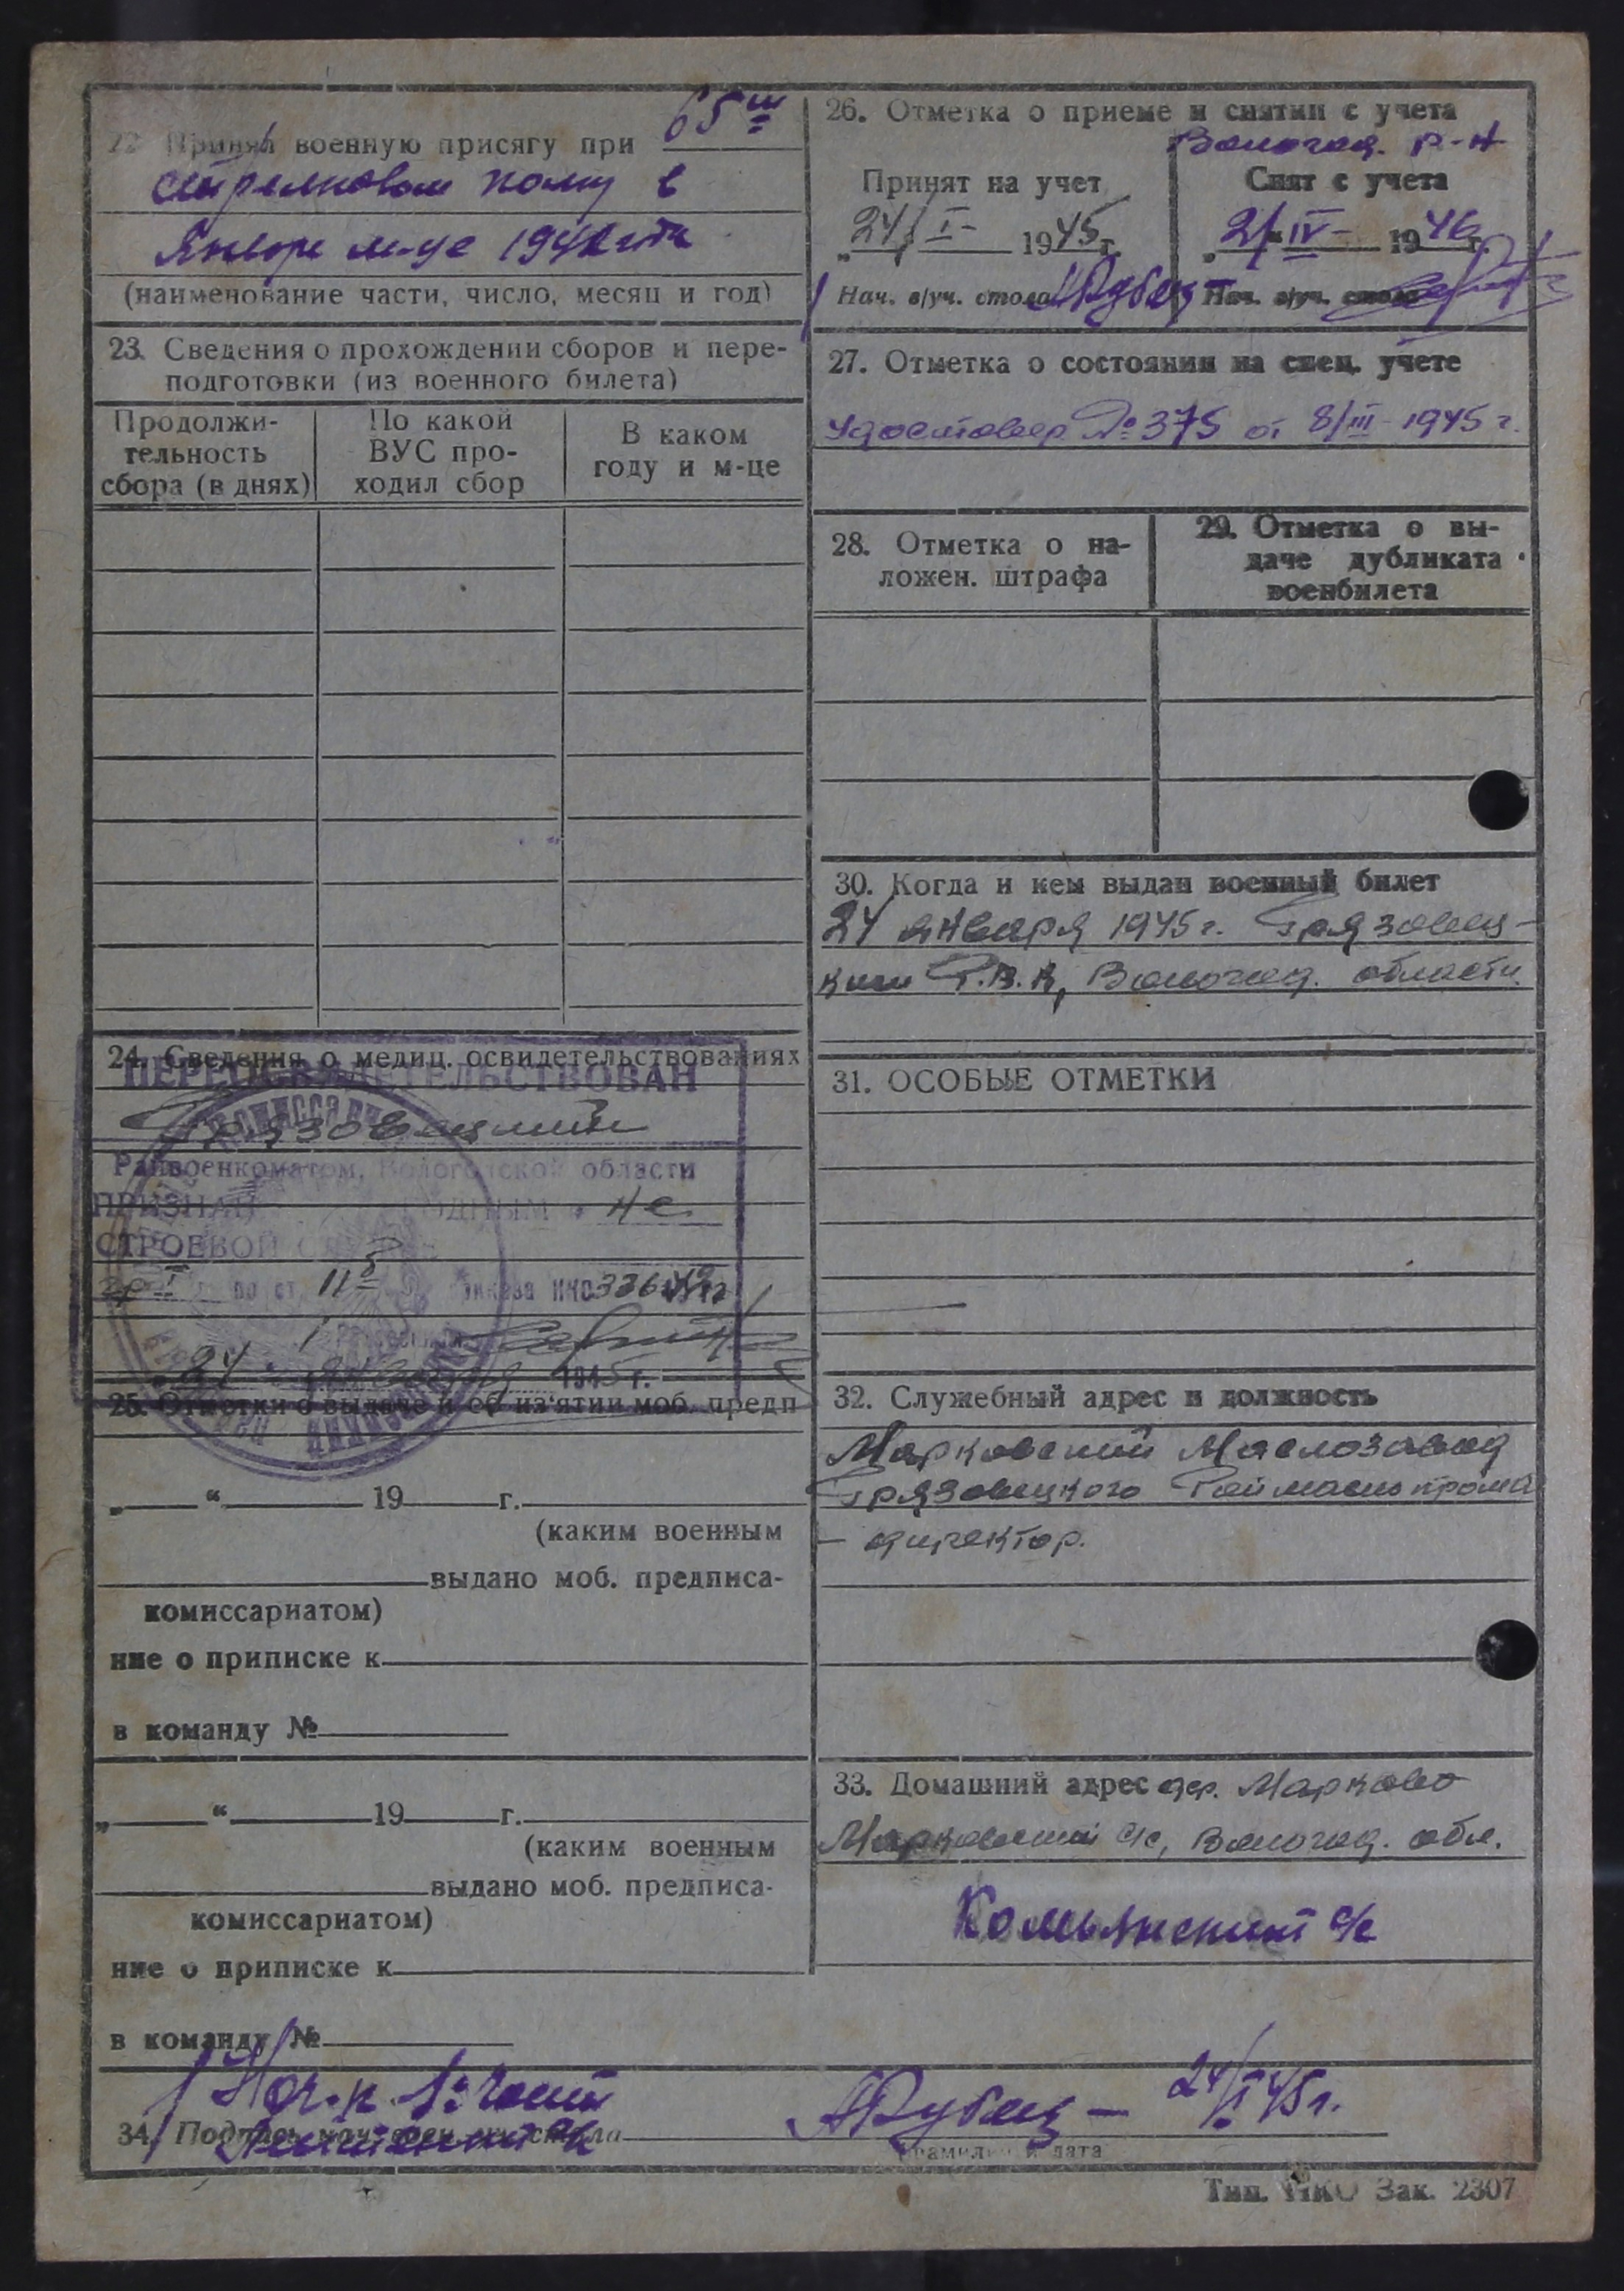 22. Принял военную присягу при 65 ш
стрелковом полку в
Январе м-це 1942 года
(наименование части, число, месяц и год)
23. Сведения о прохождении сборов и пере-
подготовки (из военного билета)
Продолжи-
тельность
сбора (в днях)
По какой
ВУС про-
ходил сбор
В каком
году и м-це
24. Сведения о медиц. освидетельствованиях
ПЕРЕОСВИДЕТЕЛЬСТВОВАН
Грязовецким
Райвоенкоматом, Вологодской области
ПРИЗНАН ГОДНЫМ к не
СТРОЕВОЙ СЛУЖБЕ
гр I по ст. 11б приказа НКО 336
24 января 1945 г.
25. Отметки о выдаче и об из'ятии моб. предп
„ “ 19 г.
(каким военным
выдано моб. предписа-
комиссариатом)
ние о приписке к
в команду №
„ “ 19 г.
(каким военным
выдано моб. предписа-
комиссариатом)
ние о приписке к
в команду №
26. Отметка о приеме и снятии с учета
Вологод. р-н
Принят на учет
„24/ I- 1945г.
Нач. в/уч. стола АДубец
Снят с учета
„2/“ IV- 1946г.
Нач. в/уч. стола
27. Отметка о состоянии на спец. учете
Удостовер. № 375 от 8/III-1945 г.
28. Отметка о на-
ложен. штрафа
29. Отметка о вы-
даче дубликата
военбилета
30. Когда и кем выдан военный билет
24 января 1945 г. Грязовец-
ким Р.В.К, Вологод. области.
31. ОСОБЫЕ ОТМЕТКИ
32. Служебный адрес и должность
Марковский Маслозавод
Грязовецкого Раймаслопрома
– директор.
33. Домашний адрес дер. Марково
Марковский с/с, Вологод. обл.
Комьянский с/с
Нач. 1 части
34. Подпись нач. воен.-уч. стола АДубец – 24/I 45г.
Лейтенант
(фамилия и дата
Тип. НКО Зак. 2307